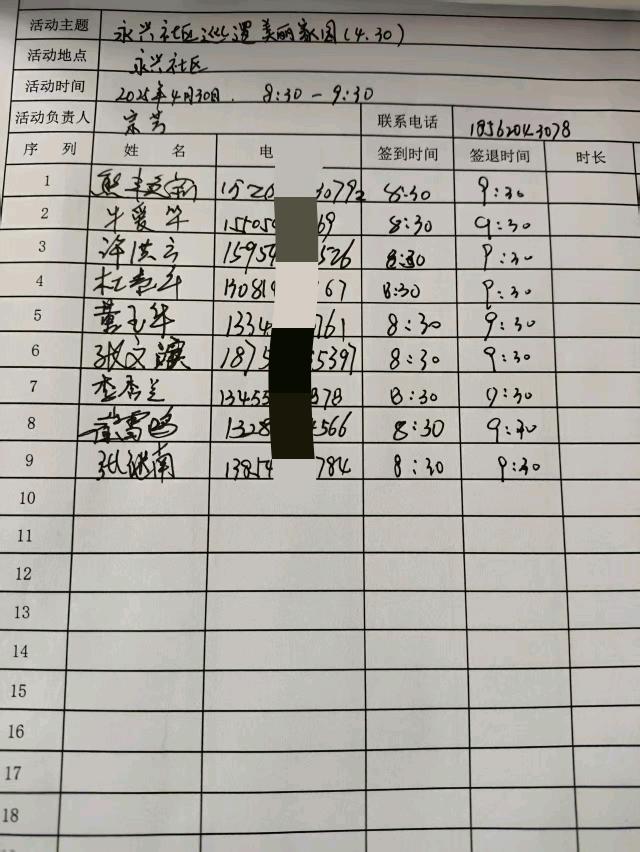 活动主题 永兴社区巡逻美丽家园(4.30)
活动地点 永兴社区
活动时间 2025年4月30日. 8:30-9:30
活动负责人 宗芳 联系电话 18562043078
序列 姓名 电 签到时间 签退时间 时长
1 8:30 9:30
2 牛爱华 15505 69 8:30 9:30
3 洪云 15954 526 8:30 9:30
4 13081 67 8:30 9:30
5 黄玉华 1334 761 8:30 9:30
6 张文滨 1875 5397 8:30 9:30
7 李香兰 13455 878 8:30 9:30
8 1328 566 8:30 9:30
9 张继南 13854 784 8:30 9:30
10
11
12
13
14
15
16
17
18